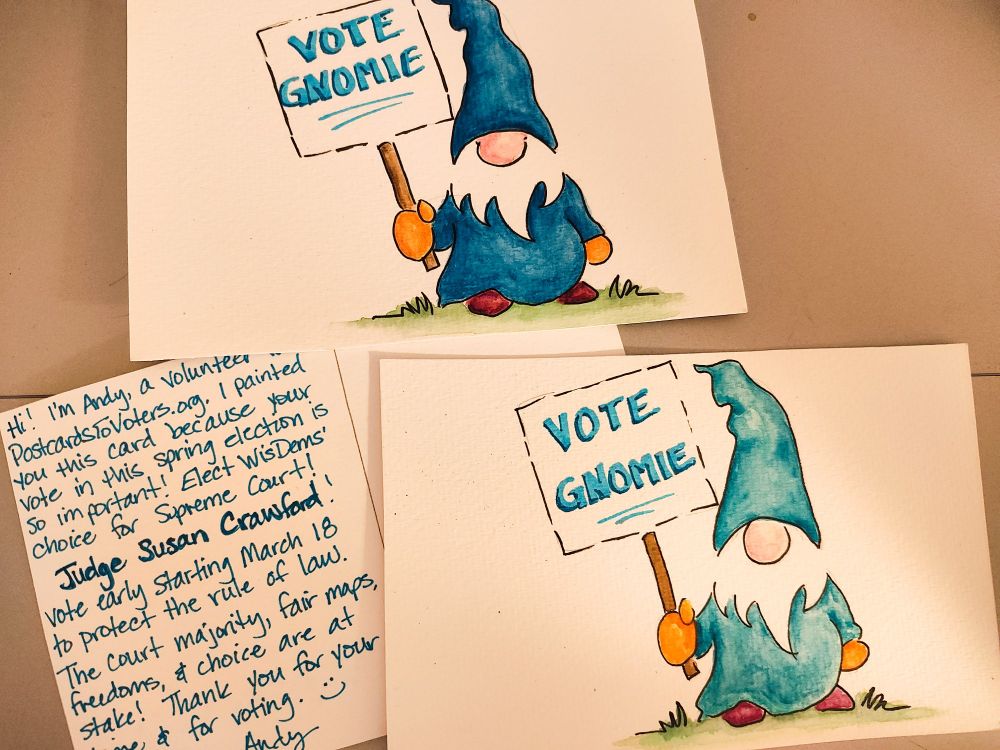 VOTE
GNOMIE
Hi! I'm Andy, a volunteer
PostcardsToVoters.org. I painted
you this card because your
vote in this spring election is
so important! Elect WisDems'
choice for Supreme Court!
Judge Susan Crawford!
vote early starting March 18
to protect the rule of law.
The Court majority, fair maps,
freedoms, & choice are at
stake! Thank you for your
& for voting. :)
Andy
VOTE
GNOMIE